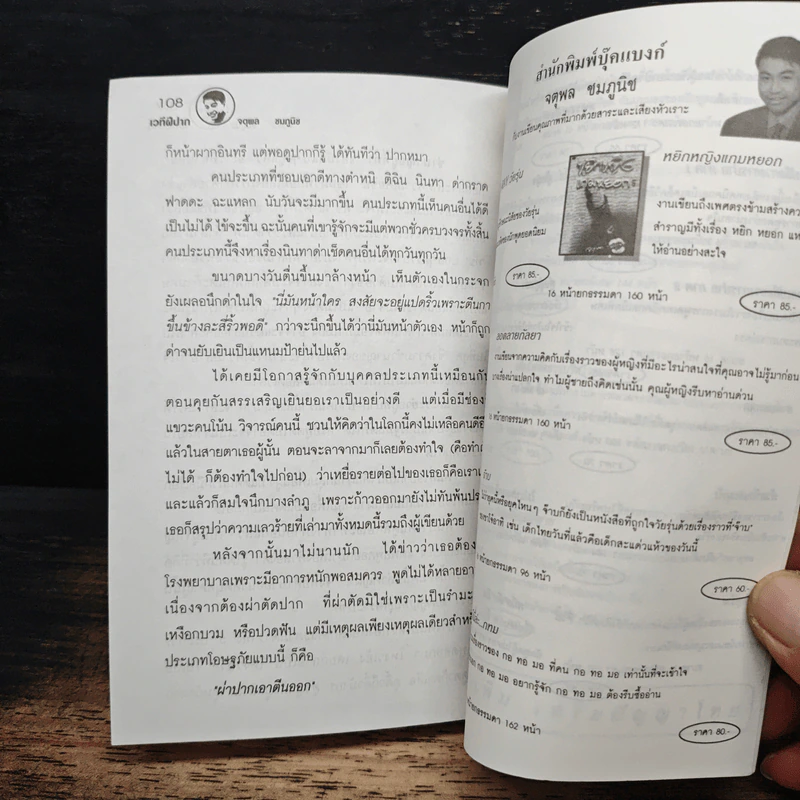 108
เวทีฝีปาก จตุพล ชมภูนิช
ก็หน้าผากอินทรี แต่พอดูปากก็รู้ ได้ทันทีว่า ปากหมา
คนประเภทที่ชอบเอาดีทางตำหนิ ติฉิน นินทา ด่ากราด
ฟาดดะ ฉะแหลก นับวันจะมีมากขึ้น คนประเภทนี้เห็นคนอื่นได้ดี
เป็นไม่ได้ ไข้จะขึ้น ฉะนั้นคนที่เขารู้จักจะมีแต่พวกชั่วครบวงจรทั้งสิ้น
คนประเภทนี้จึงหาเรื่องนินทาด่าเช็ดคนอื่นได้ทุกวันทุกวัน
ขนาดบางวันตื่นขึ้นมาล้างหน้า เห็นตัวเองในกระจก
ยังเผลอนึกด่าในใจ "นี่มันหน้าใคร สงสัยจะอยู่แปดริ้วเพราะตีนกา
ขึ้นข้างละสี่ริ้วพอดี" กว่าจะนึกขึ้นได้ว่านี่มันหน้าตัวเอง หน้าก็ถูก
ด่าจนยับเยินเป็นแหนมป้าย่นไปแล้ว
ได้เคยมีโอกาสรู้จักกับบุคคลประเภทนี้เหมือนกัน
ตอนคุยกันสรรเสริญเยินยอเราเป็นอย่างดี แต่เมื่อมีช่อง
แขวะคนโน้น วิจารณ์คนนี้ ชวนให้คิดว่าในโลกนี้คงไม่เหลือคนดีอี
แล้วในสายตาเธอผู้นั้น ตอนจะลาจากมาก็เลยต้องทำใจ (คือทำ
ไม่ได้ ก็ต้องทำใจไปก่อน) ว่าเหยื่อรายต่อไปของเธอก็คือเรา
และแล้วก็สมใจนึกบางลำภู เพราะก้าวออกมายังไม่ทันพ้นปร
เธอก็สรุปว่าความเลวร้ายที่เล่ามาทั้งหมดนี้รวมถึงผู้เขียนด้วย
หลังจากนั้นมาไม่นานนัก ได้ข่าวว่าเธอต้อง
โรงพยาบาลเพราะมีอาการหนักพอสมควร พูดไม่ได้หลายอา
เนื่องจากต้องผ่าตัดปาก ที่ผ่าตัดมิใช่เพราะเป็นรำมะ
เหงือกบวม หรือปวดฟัน แต่มีเหตุผลเพียงเหตุผลเดียวสำหรั
ประเภทโอษฐภัยแบบนี้ ก็คือ
"ผ่าปากเอาตีนออก"
สำนักพิมพ์บุ๊คแบงก์
จตุพล ชมภูนิช
กับงานเขียนคุณภาพที่มากด้วยสาระและเสียงหัวเราะ
วัยรุ่น
ของวัยรุ่น
ยอดนิยม
ราคา 85.-
หยิกหญิงแกมหยอก
งานเขียนถึงเพศตรงข้ามสร้างคว
สำราญมีทั้งเรื่อง หยิก หยอก แห
ให้อ่านอย่างสะใจ
16 หน้ายกธรรมดา 160 หน้า
ราคา 85.-
ยอดชายกัลยา
งานเขียนจากความคิดกับเรื่องราวของผู้หญิงที่มีอะไรน่าสนใจที่คุณอาจไม่รู้มาก่อน
น่าแปลกใจ ทำไมผู้ชายถึงคิดเช่นนั้น คุณผู้หญิงรีบหาอ่านด่วน
หน้ายกธรรมดา 160 หน้า
ราคา 85.-
ยุคนี้หรือยุคไหนๆ จ๊าบก็ยังเป็นหนังสือที่ถูกใจวัยรุ่นด้วยเรื่องราวที่"จ๊าบ"
เช่น เด็กไทยวันที่แล้วคือเด็กสะแด่วแห้วของวันนี้
หน้ายกธรรมดา 96 หน้า
ราคา 60.-
กทม
ของ กอ ทอ มอ ที่คน กอ ทอ มอ เท่านั้นที่จะเข้าใจ
กอ ทอ มอ อยากรู้จัก กอ ทอ มอ ต้องรีบซื้ออ่าน
หน้ายกธรรมดา 162 หน้า
ราคา 80.-